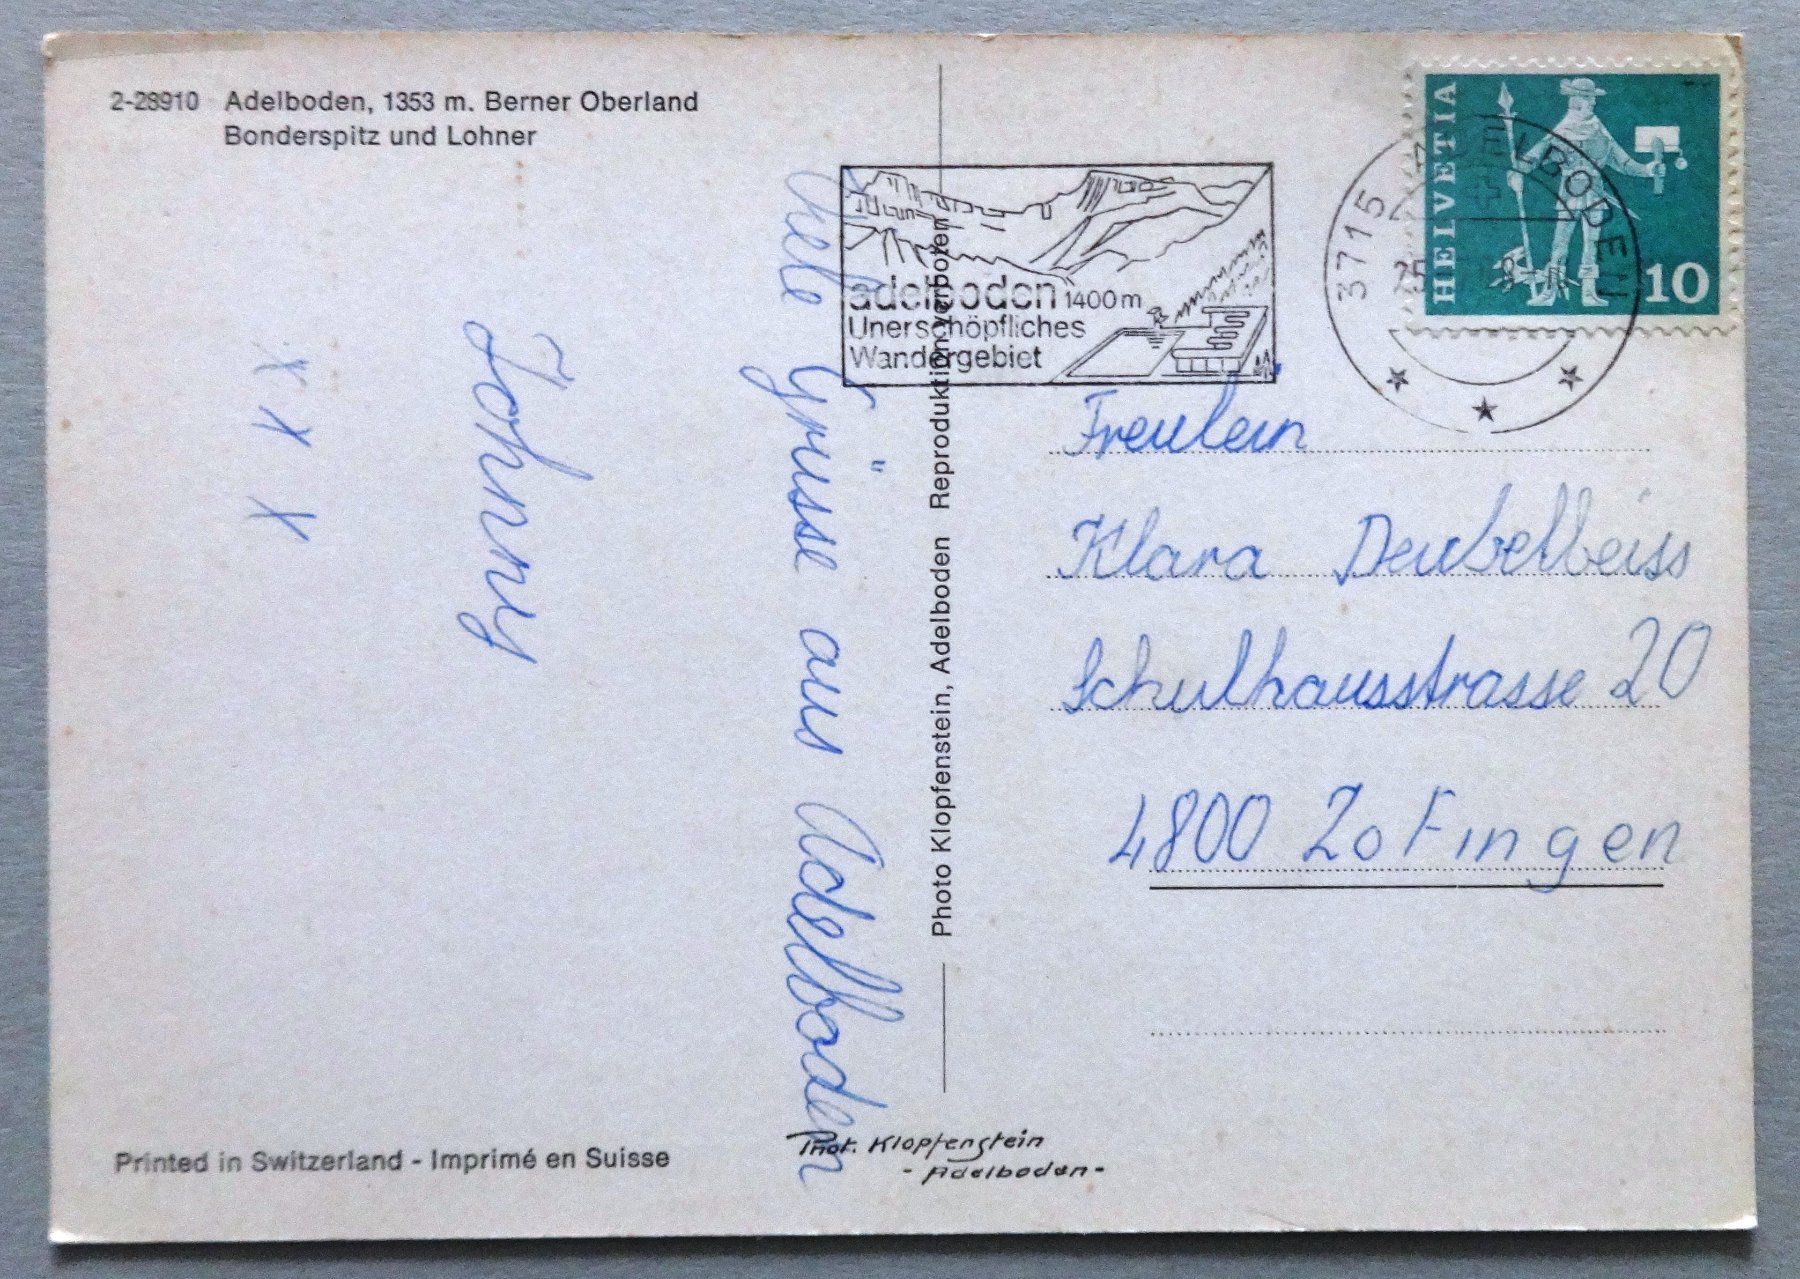 2-28910 Adelboden, 1353 m. Berner Oberland
Bonderspitz und Lohner
Grüsse aus Adelboden
Johnny
X X X
Printed in Switzerland - Imprimé en Suisse
Photo Klopfenstein, Adelboden Reproduktion verboten
Phot. Klopfenstein
- Adelboden -
adelboden 1400 m
Unerschöpfliches
Wandergebiet
3715 ADELBODEN
HELVETIA
10
Freulein
Klara Deubelbeiss
Schulhausstrasse 20
4800 Zofingen